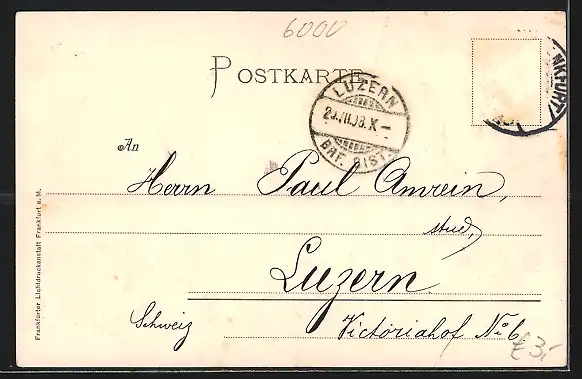 6000
POSTKARTE
LUZERN
BRF. DIST.
NKFURT
An
Herrn Paul Amrein,
stud,
Luzern
Schweiz
Victoriahof No 6
£3,-
Frankfurter Lichtdruckanstalt Frankfurt a. M.